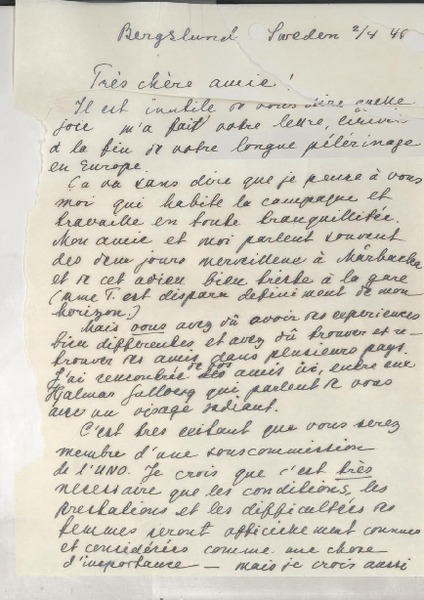 Bergslund Sweden 2/4 46
Très chère amie!
Il est inutile de vous dire quelle
joie m'a fait votre lettre, écrivé
à la fin de votre longue pélérinage
en Europe.
Ça va sans dire que je pense à vous
moi qui habite la campagne et
travaille en toute tranquillitée.
Mon amie et moi parlent souvent
des deux jours merveilleux à Mårbacka
et de cet adieu bien triste à la gare
(Mme T. est disparu definiment de mon
horizon.)
Mais vous avez dû avoir des experiences
bien differentes, et avez dû trouver et re-
trouver des amis dans plusieurs pays.
J'ai rencontrée de vos amis ici, entre eux
Hjalmar Gullberg qui parlent de vous
avec un visage radiant.
C'est tres exitant que vous serez
membre d'une souscommission
de l'UNO. Je crois que c'est très
necessaire que les conditions, les
prestations et les difficultées des
femmes seront officiellement connues
et considérées comme une chose
d'importance — mais je crois aussi